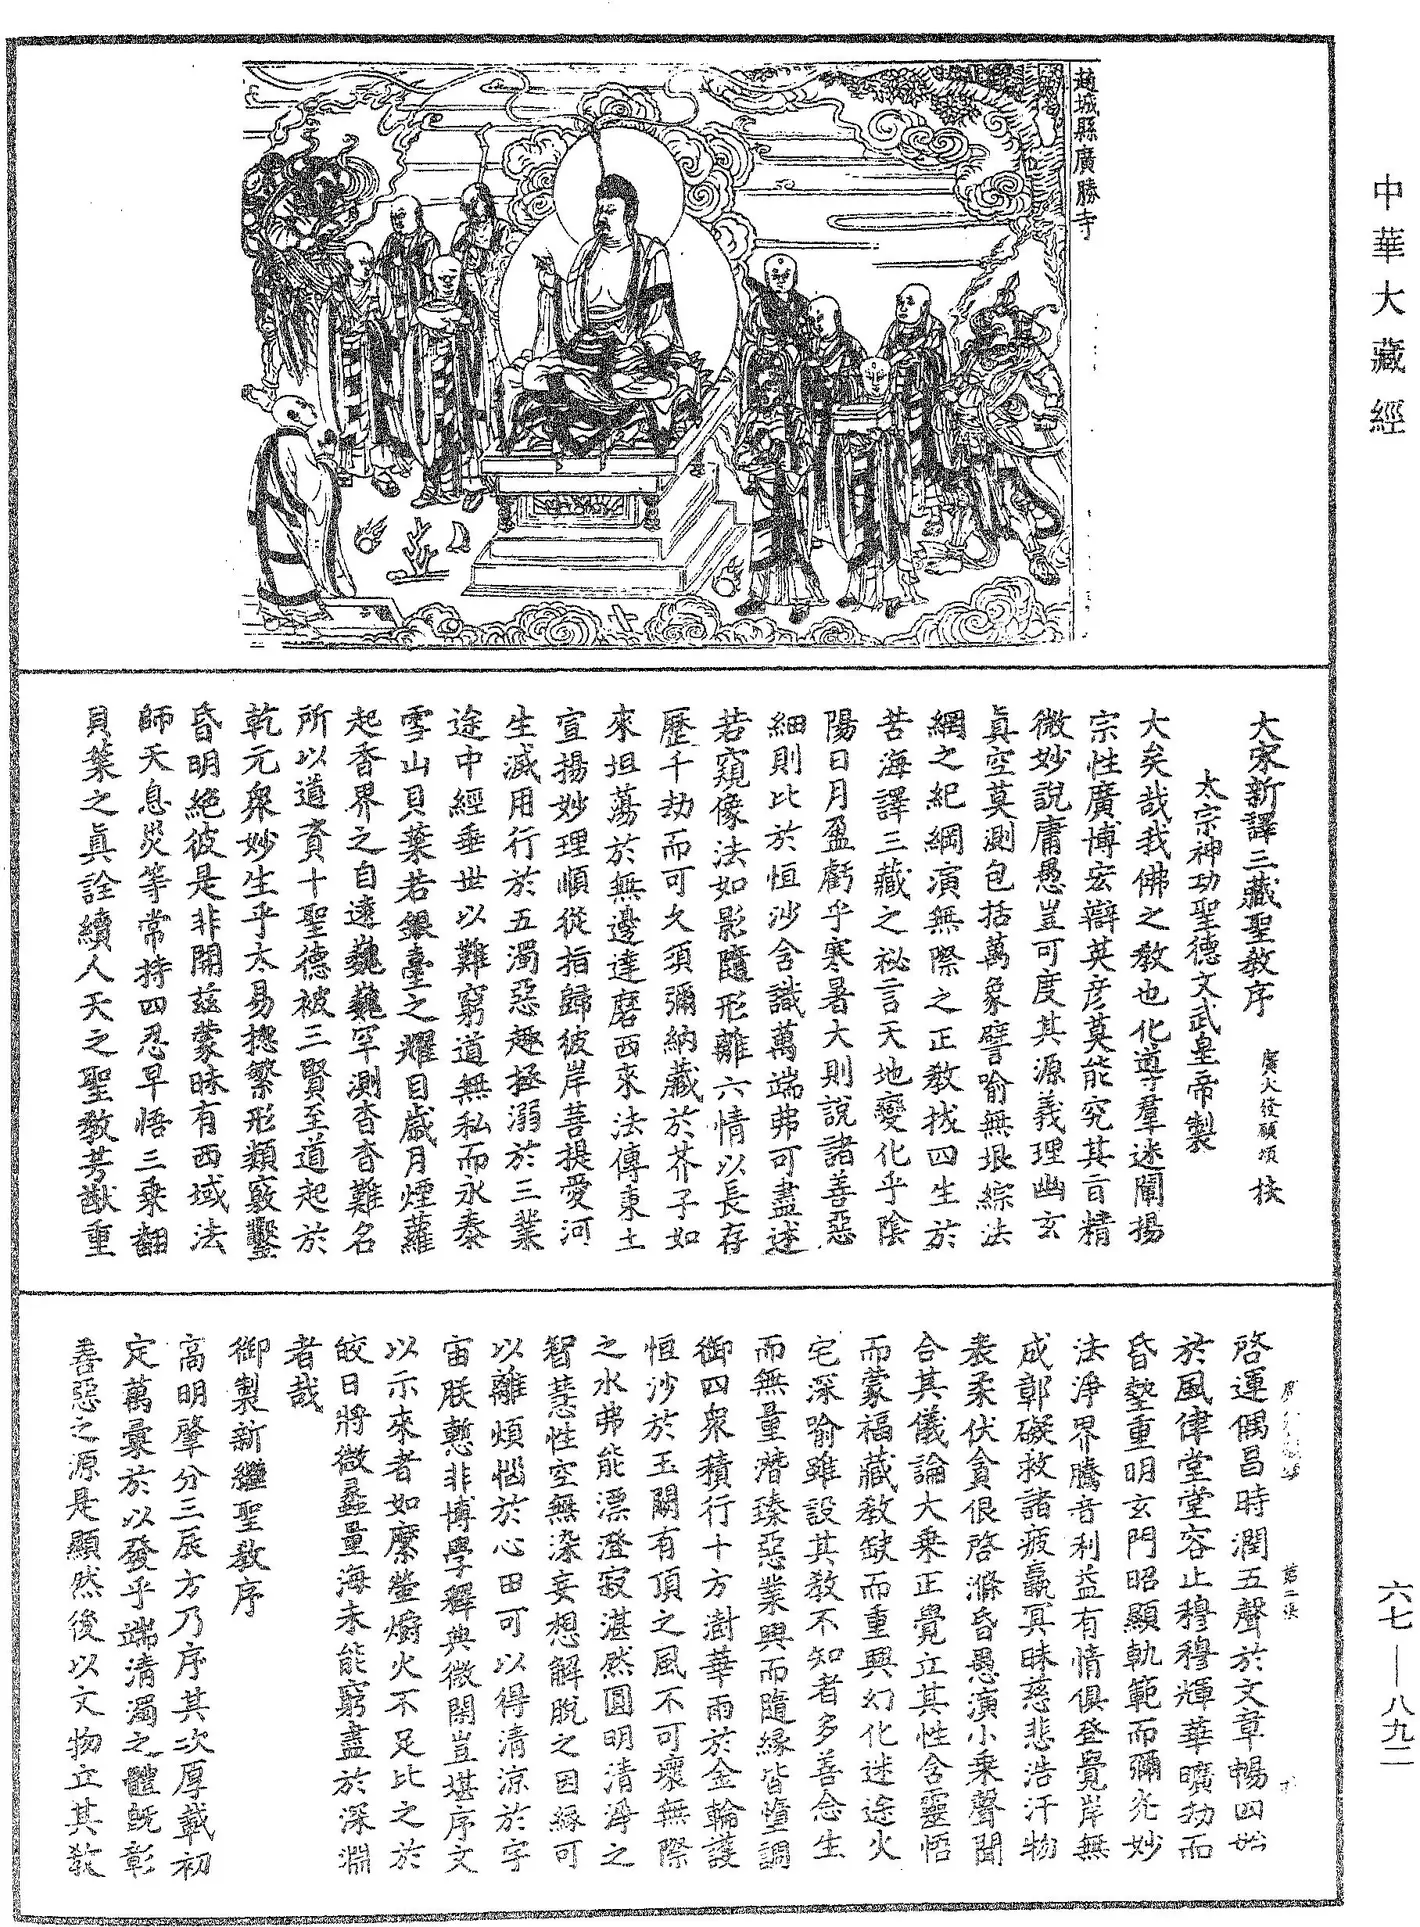 中華大藏經
趙城縣廣勝寺
大宋新譯三藏聖教序
太宗神功聖德文武皇帝製
大矣哉我佛之教也化導羣迷闡揚
宗性廣博宏辯英彥莫能究其言精
微妙說庸愚豈可度其源義理幽玄
真空莫測包括萬象譬喻無垠綜法
網之紀綱演無際之正教拔四生於
苦海譯三藏之祕言天地變化乎陰
陽日月盈虧乎寒暑大則說諸善惡
細則比於恒沙含識萬端弗可盡述
若窺像法如影隨形離六情以長存
歷千劫而可久須彌納藏於芥子如
來坦蕩於無邊達磨西來法傳東土
宣揚妙理順從指歸彼岸菩提愛河
生滅用行於五濁惡趣拯溺於三業
途中經垂世以難窮道無私而永泰
雪山貝葉若銀臺之耀目歲月煙蘿
起香界之自遠巍巍罕測杳杳難名
所以道資十聖德被三賢至道起於
乾元衆妙生乎太易摠繁形類竅鑿
昏明絕彼是非開茲蒙昧有西域法
師天息災等常持四忍早悟三乘翻
貝葉之真詮續人天之聖教芳猷重
啓運偶昌時潤五聲於文章暢四始
於風律堂堂容止穆穆輝華曠劫而
昏墊重明玄門昭顯軌範而彌光妙
法淨界騰音利益有情俱登覺岸無
成鄣礙救諸疲羸冥昧慈悲浩汗物
表柔伏貪佷啓滌昏愚演小乘聲聞
合其儀論大乘正覺立其性含靈悟
而蒙福藏教缺而重興幻化迷途火
宅深喻雖設其教不知者多善念生
而無量潛臻惡業興而隨緣皆墮調
御四衆積行十方澍華雨於金輪護
恒沙於玉闕有頂之風不可壞無際
之水弗能漂澄寂湛然圓明清淨之
智慧性空無染妄想解脫之因緣可
以離煩惱於心田可以得清涼於宇
宙朕慙非博學釋典微閑豈堪序文
以示來者如縻螢爝火不足比之於
皎日將微蠡量海未能窮盡於深淵
者哉
御製新繼聖教序
高明肇分三辰方乃序其次厚載初
定萬彙於以發乎端清濁之體旣彰
善惡之源是顯然後以文物立其教
第二張
六七—八九二